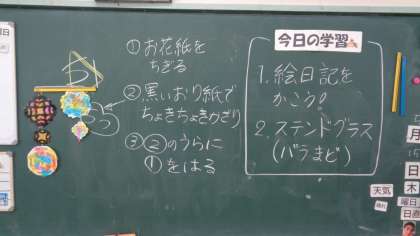 ① お花紙を
ちぎる
② 黒いおり紙で
ちょきちょきかざり
③ ②のうらに
①をはる
今日の学習
1. 絵日記を
かこう!
2. ステンドグラス
(バラまど)
月
日
木
曜日
日直
天気
晴れ